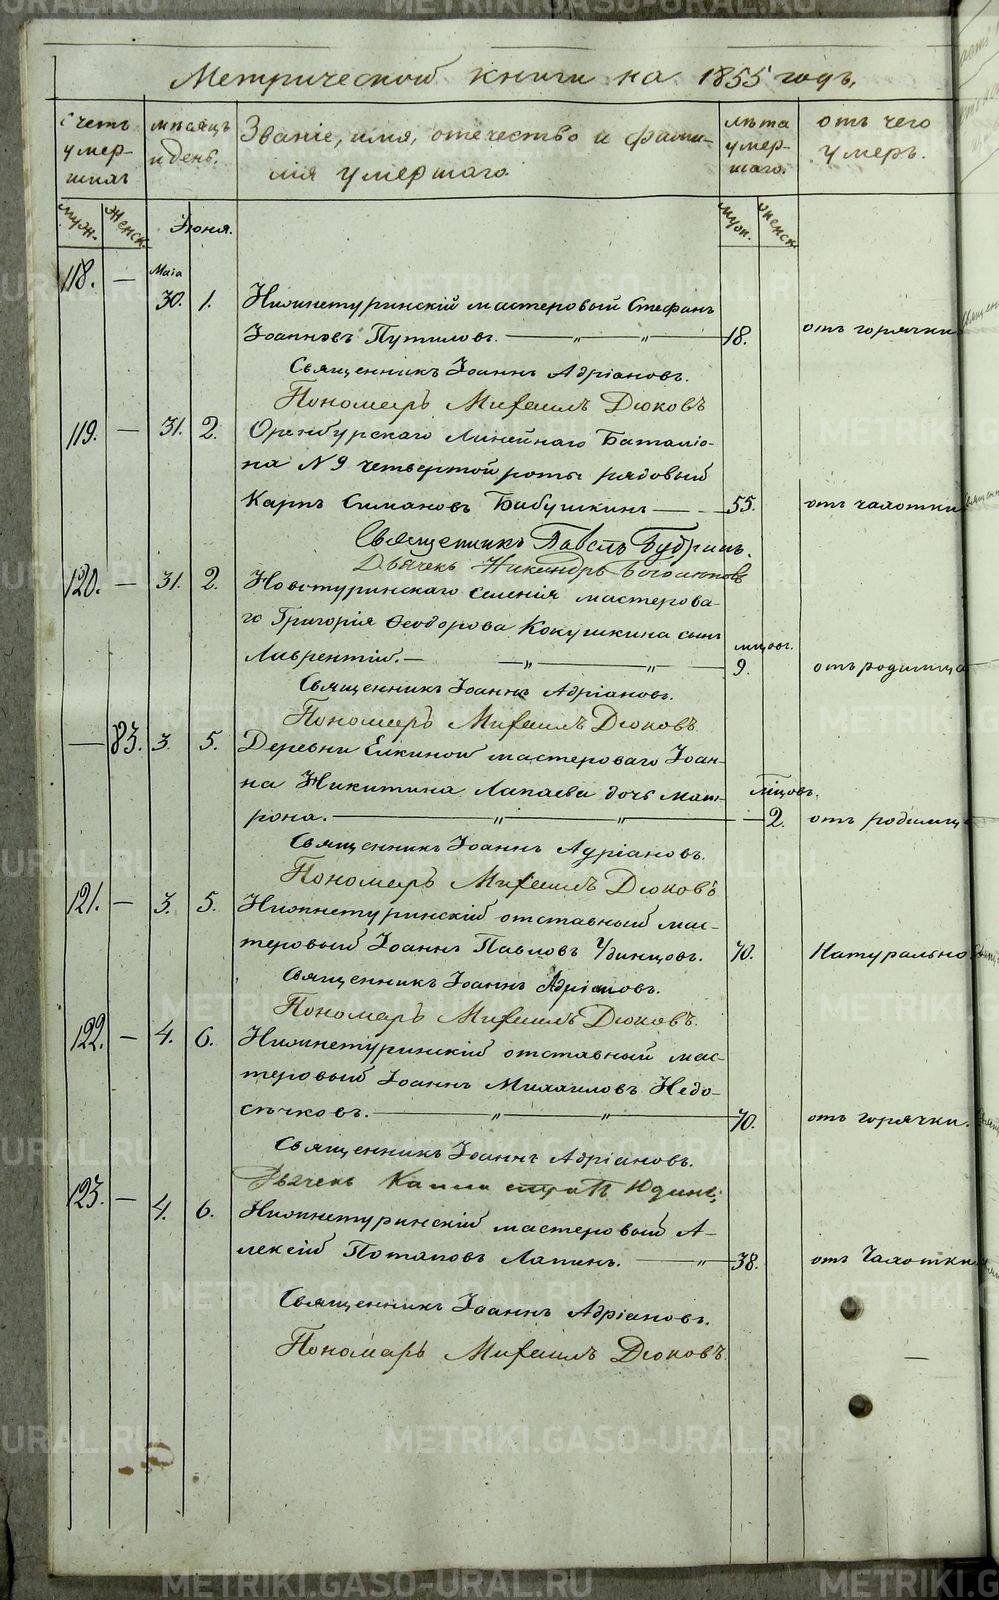 Метрической книги на 1855 годъ.
Счетъ умершихъ
мѣсяцъ и день.
Званіе, имя, отечество и фамилія умершаго
лѣта умершаго.
отъ чего умеръ.
муж. женск. Іюня. муж. женск.
Маія
118. — 30. 1. Нижнетуринскій мастеровый Стефанъ
Іоанновъ Путиловъ. — 18. отъ горячки
Священникъ Іоаннъ Адріановъ.
Пономарь Михаилъ Дюковъ
119. — 31. 2. Оренбурскаго Линейнаго Баталіо-
на N 9 четвертой роты рядовый
Карпъ Симановъ Бабушкинъ — 55. отъ чахотки
Священникъ Павелъ Будринъ.
Дьячекъ Никандръ
120. — 31. 2. Новотуринскаго селенія мастерова-
го Григорія Ѳеодорова Кокушкина сынъ
мцовъ.
Лаврентій. — 9. отъ родимца
Священникъ Іоаннъ Адріановъ.
Пономарь Михаилъ Дюковъ.
— 83. 3. 5. Деревни Елкиной мастероваго Іоан-
на Никитина Лапаева дочь Мат-
мцовъ.
рона. — 2. отъ родимца
Священникъ Іоаннъ Адріановъ.
Пономарь Михаилъ Дюковъ
121. — 3. 5. Нижнетуринскій отставный мас-
теровый Іоаннъ Павловъ Удинцовъ. 70. Натурально
Священникъ Іоаннъ Адріановъ.
Пономарь Михаилъ Дюковъ.
122. — 4. 6. Нижнетуринскій отставный мас-
теровый Іоаннъ Михаиловъ Недо-
сѣчковъ. — 70. отъ горячки.
Священникъ Іоаннъ Адріановъ.
Дьячекъ
123. — 4. 6. Нижнетуринскій мастеровый А-
лексій Потаповъ Лапинъ. — 38. отъ Чахотки
Священникъ Іоаннъ Адріановъ.
Пономарь Михаилъ Дюковъ.
METRIKI.GASO-URAL.RU